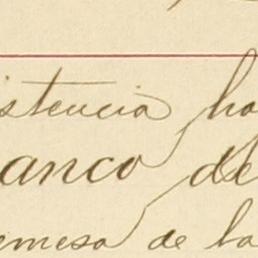 istencia ha
anco de
emesa de la